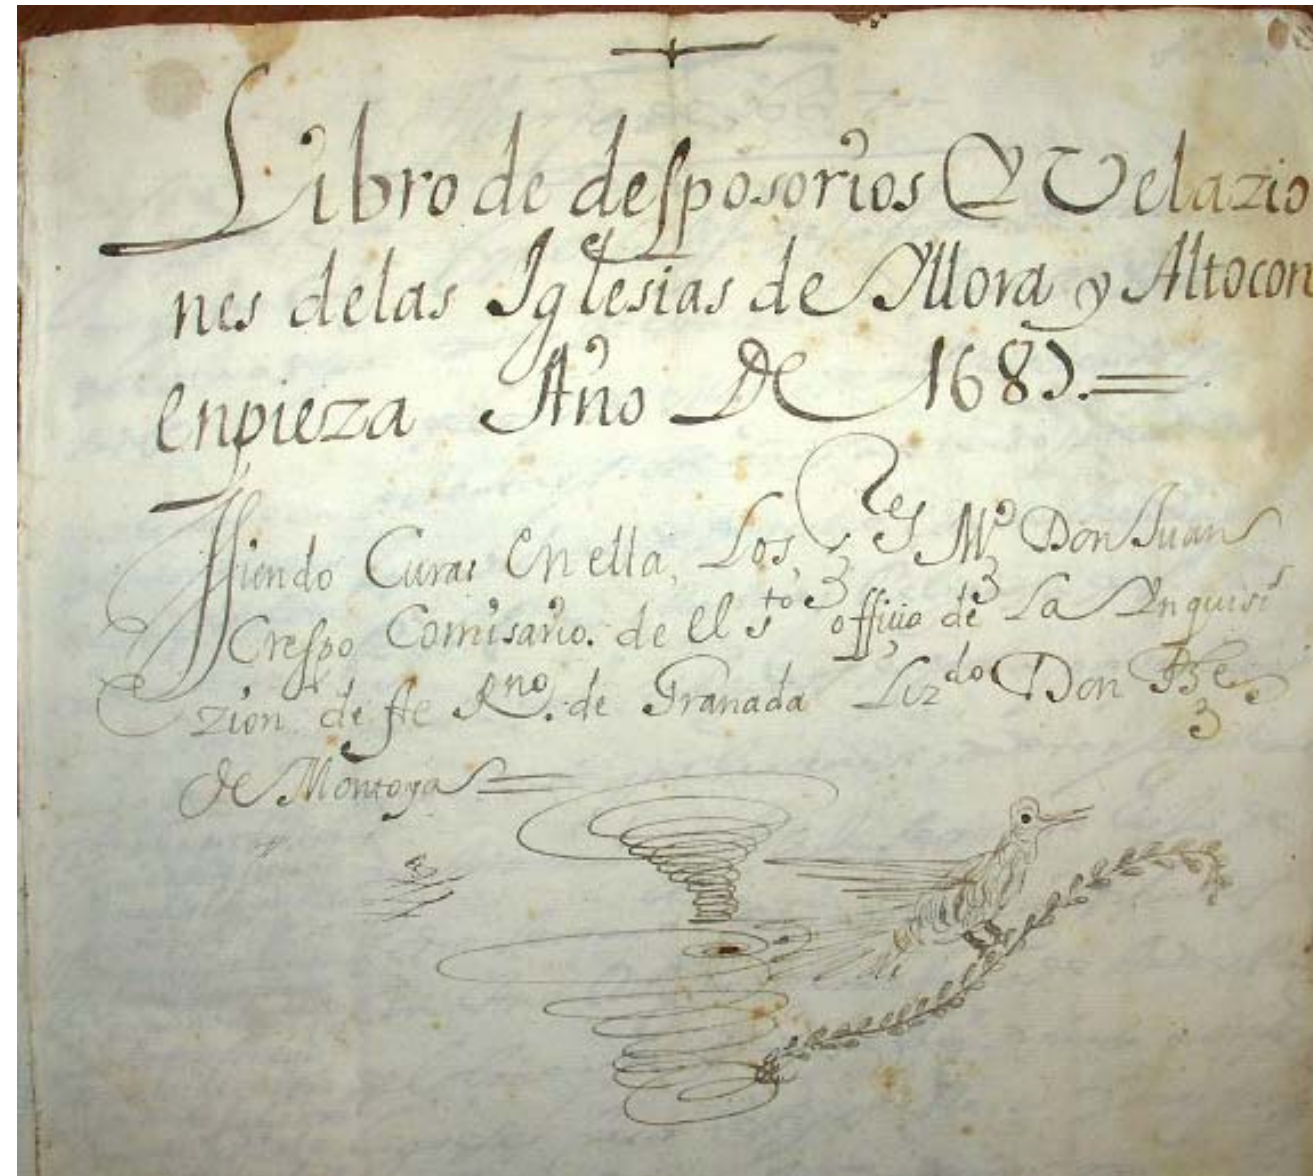 Libro de desposorios Y Velazio
nes delas Iglesias de Yllora y Altocon
enpieza Año De 168
Siendo Curas en ella, Los, Res M.º Don Juan
Crespo Comisario. de el s.to officio de La Ynquisi
zion de ste R.no de Granada Liz.do Don
de Montoya